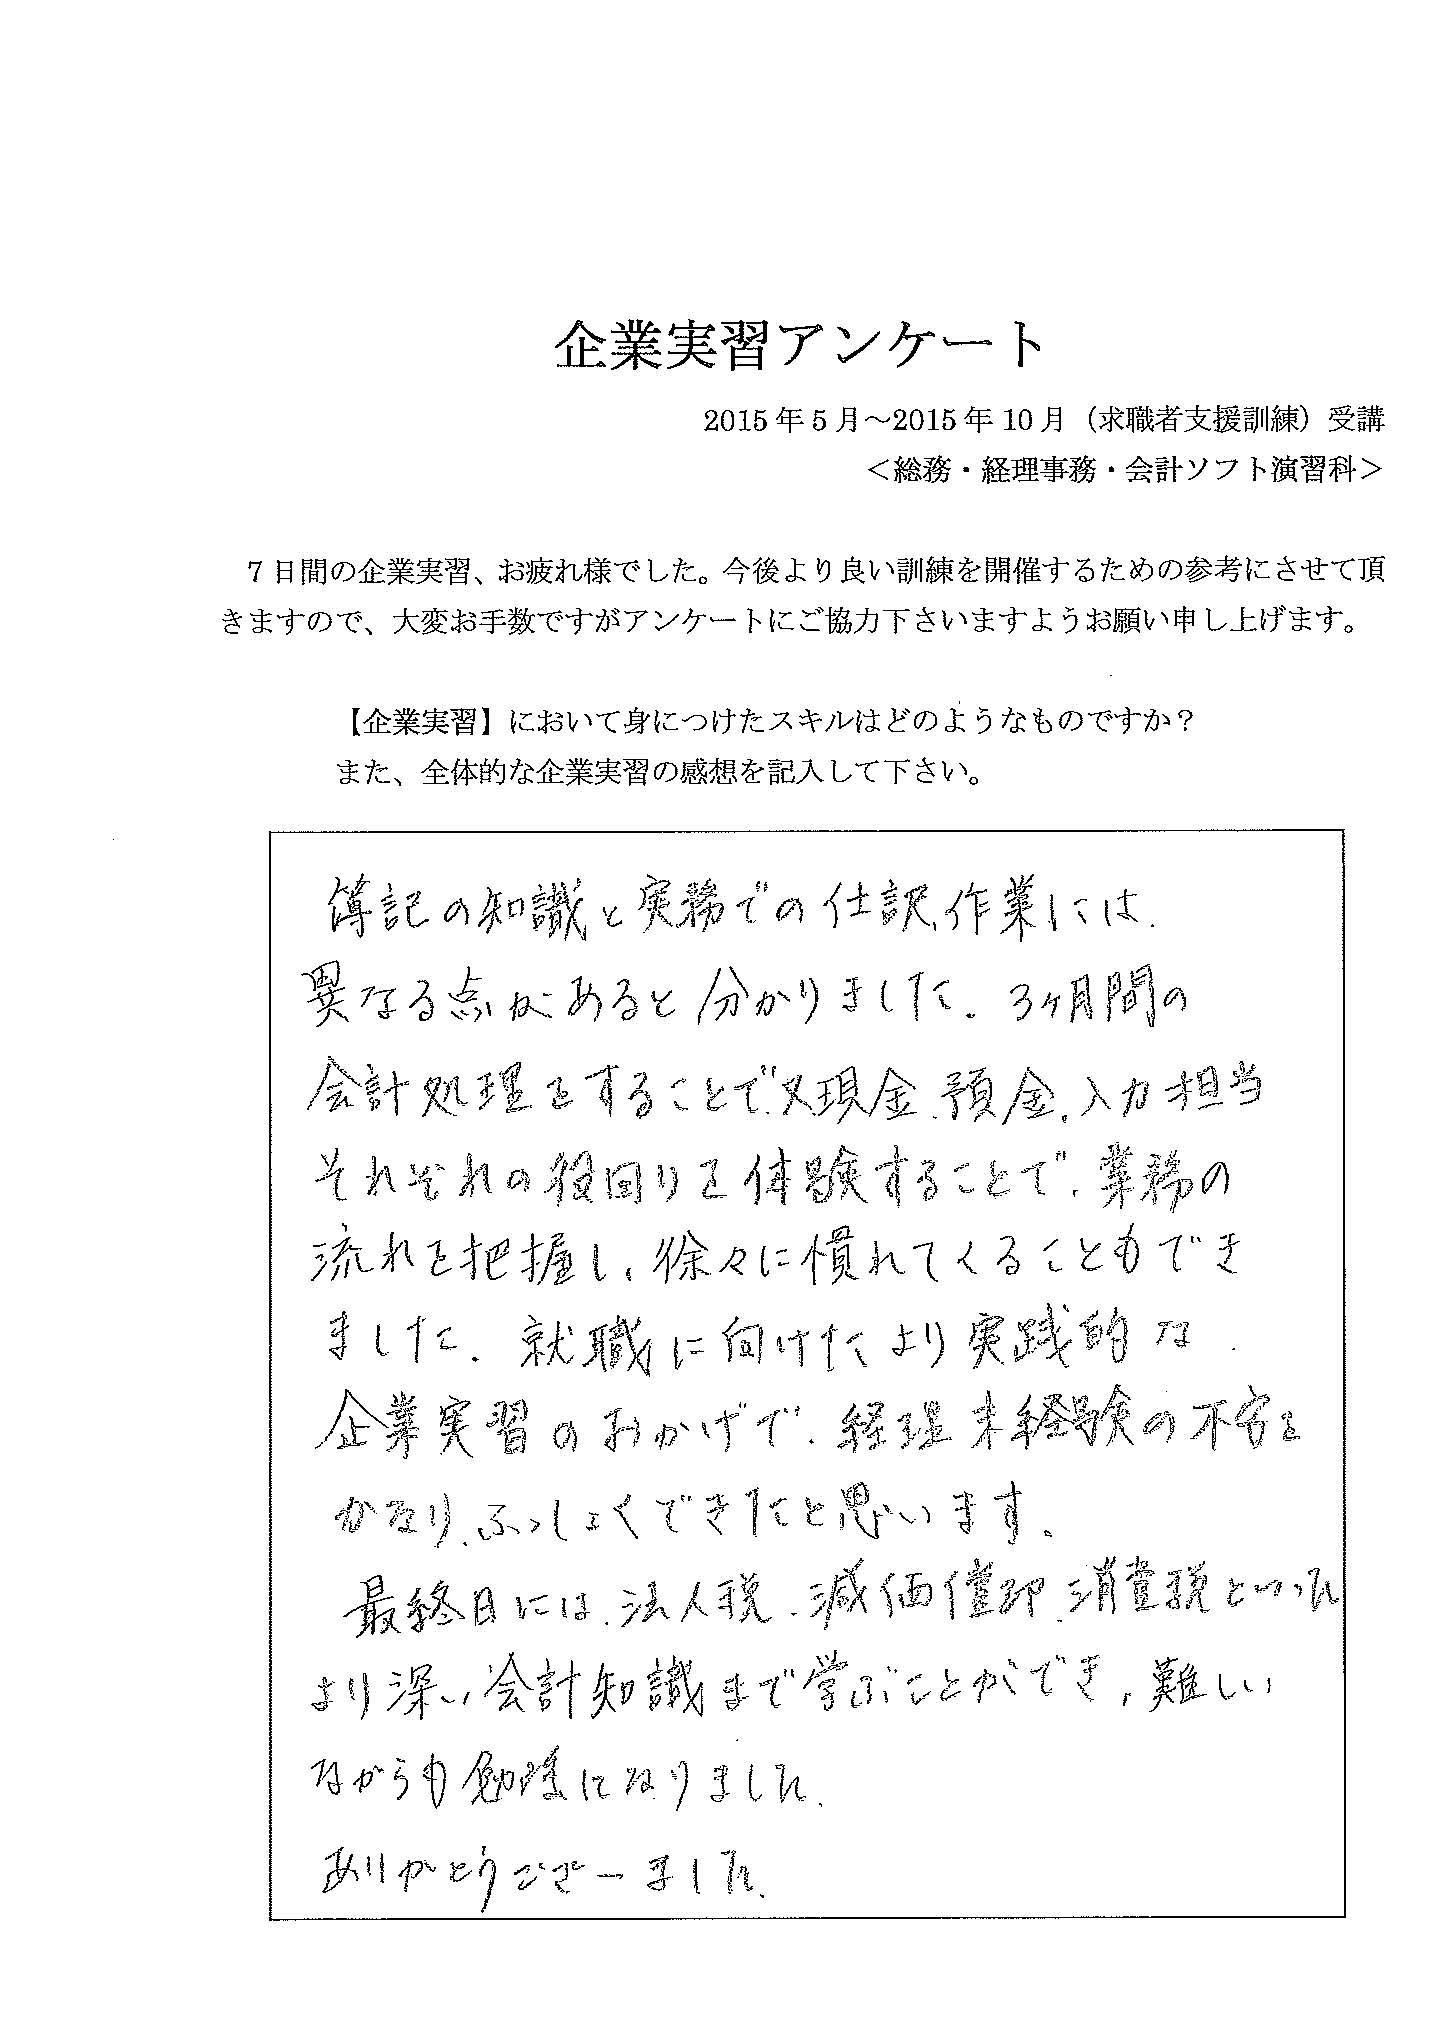 企業実習アンケート
2015年5月～2015年10月（求職者支援訓練）受講
＜総務・経理事務・会計ソフト演習科＞
7日間の企業実習、お疲れ様でした。今後より良い訓練を開催するための参考にさせて頂
きますので、大変お手数ですがアンケートにご協力下さいますようお願い申し上げます。
【企業実習】において身につけたスキルはどのようなものですか？
また、全体的な企業実習の感想を記入して下さい。
簿記の知識と実務での仕訳作業には、
異なる点があると分かりました。3ヶ月間の
会計処理をすることで、又現金、預金、入力担当
それぞれの役回りを体験することで、業務の
流れを把握し、徐々に慣れてくることもでき
ました。就職に向けたより実践的な
企業実習のおかげで、経理未経験の不安を
かなり、ふっしょくできたと思います。
最終日には、法人税、減価償却、消費税といった
より深い会計知識まで学ぶことができ、難しい
ながらも勉強になりました。
ありがとうございました。